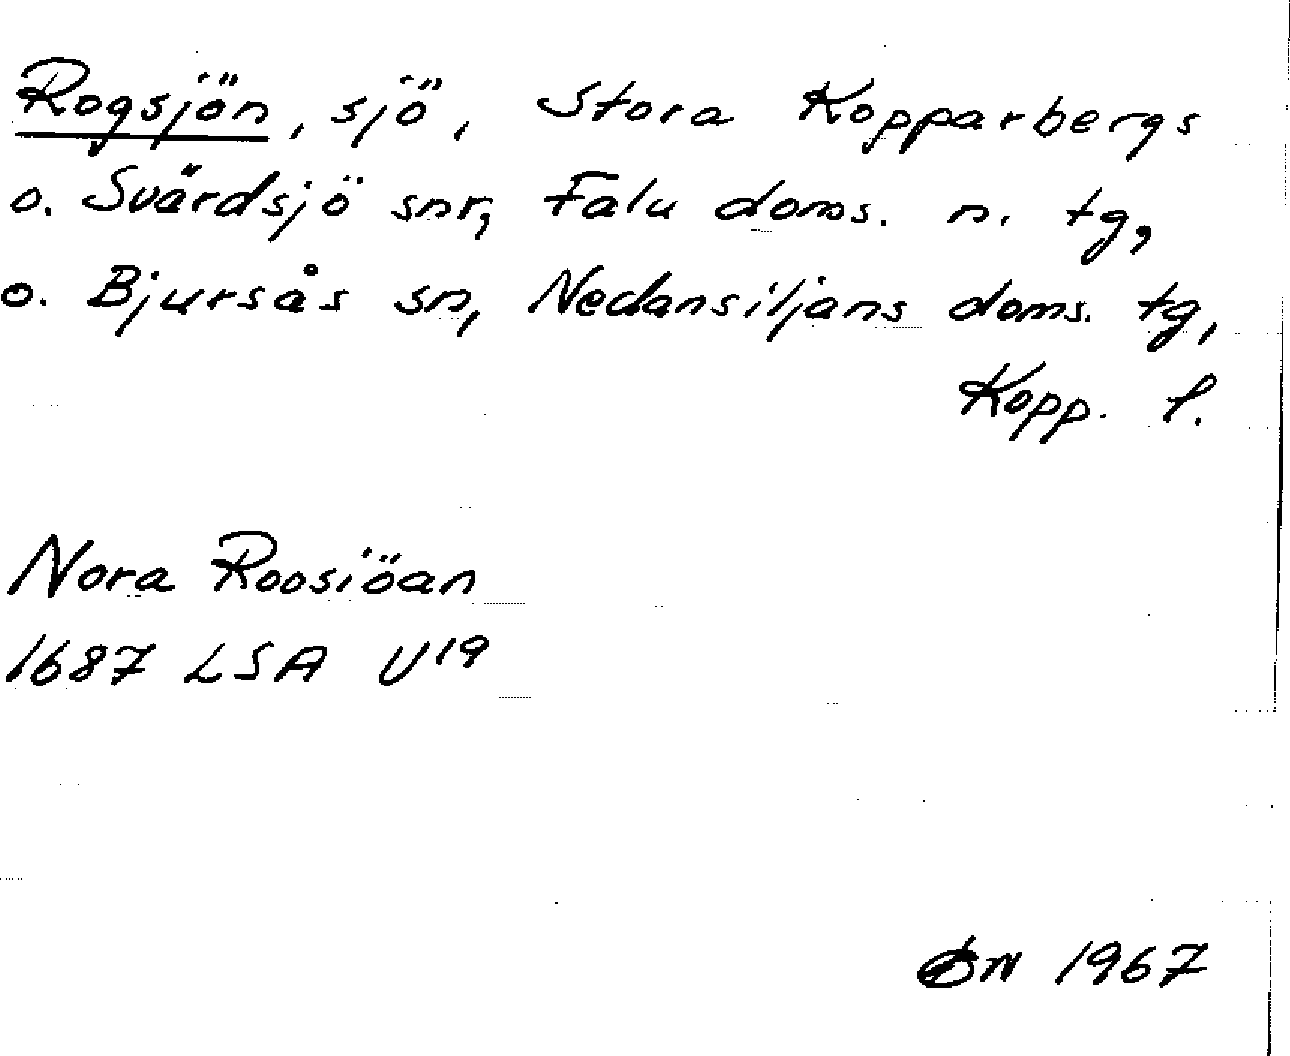 Rogsjön, sjö, Stora Kopparbergs
o. Svärdsjö snr, Falu doms. n. tg,
o. Bjursås sn, Nedansiljans doms. tg,
Kopp. l.
Nora Roosiöan
1687 LSA U19
1967